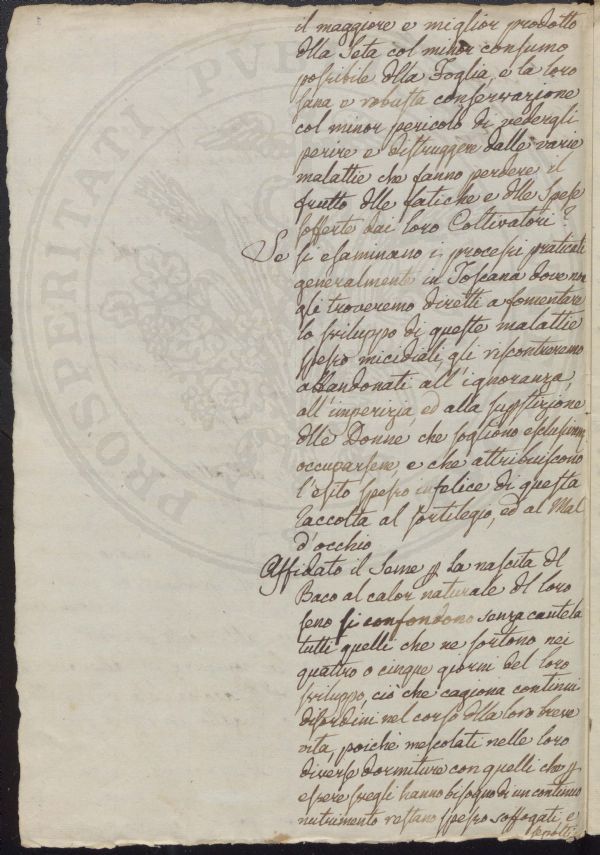 il maggiore e miglior prodotto
dlla Seta col minor consumo
possibile dlla Foglia, e la loro
sana e robusta conservazione
col minor pericolo di vedergli
perire e distruggere dalle varie
malattie che fanno perdere il
frutto dlle fatiche e dlle spese
sofferte dai loro Coltivatori?
Se si esaminano i processi praticati
generalmente in Toscana dove non
gli troveremo diretti a fomentare
lo sviluppo di queste malattie
spesso micidiali, gli riscontreremo
abbandonati all'ignoranza,
all'imperizia, ed alla supstizione
dlle Donne che sogliono esclusivam
occuparsene, e che attribuiscono
l'esito spesso infelice di questa
raccolta al sortilegio, ed al Mal
d'occhio
Affidato il Seme p la nascita dl
Baco al calor naturale dl loro
seno si confondono senza cautela
tutti quelli che ne sortono nei
quattro o cinque giorni del loro
sviluppo, ciò che cagiona continui
disordini nel corso dlla loro breve
vita, poichè mescolati nelle loro
diverse dormiture con quelli che p
essere svegli hanno bisogno di un continuo
nutrimento restano spesso soffogati, e
sepolti
PROSPERITATI PVB